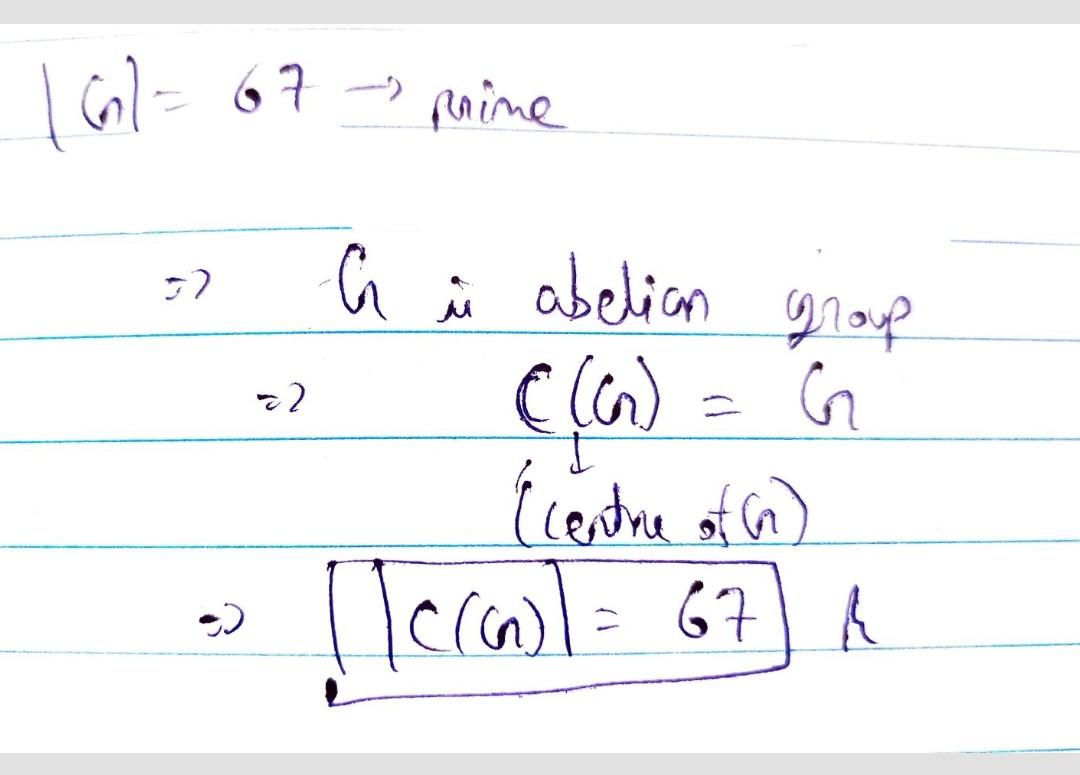 |G| = 67 → prime
⇒ G is abelian group
⇒ C(G) = G
↓
(centre of G)
⇒ |C(G)| = 67